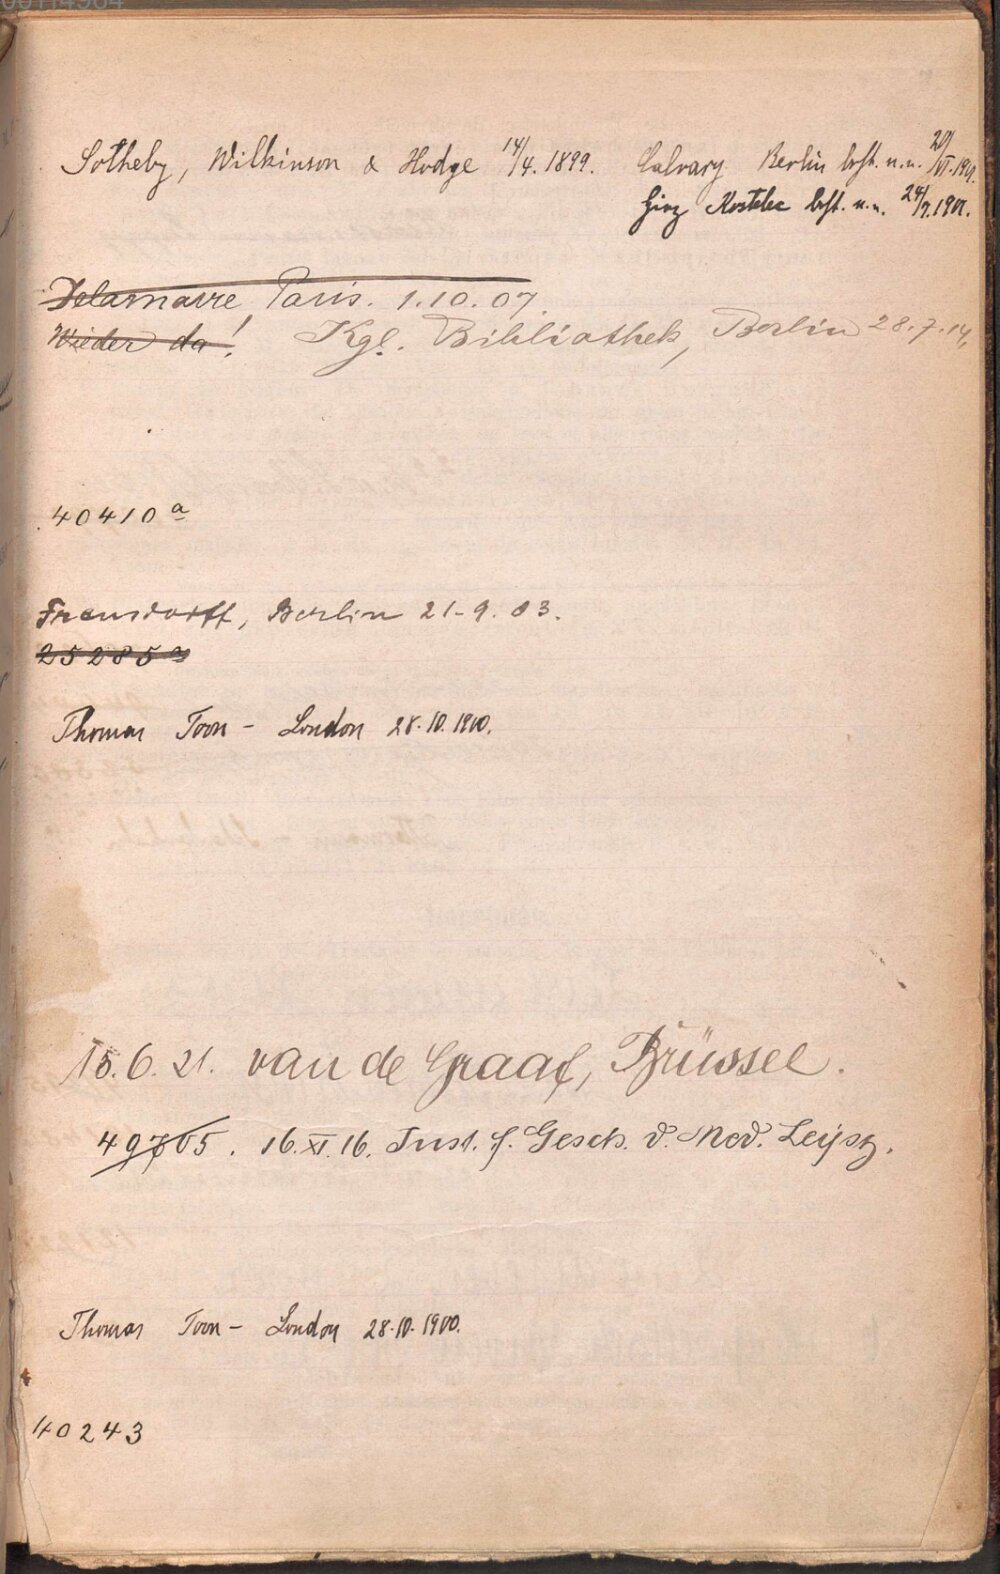 Sotheby, Wilkinson & Hodge 14/4. 1899. Calvary Berlin bst. n.n. 20/VI.1901.
Kostelec bst. n.n. 24/9.1901.
Delamarre, Paris. 1.10.07.
Wieder da! Kgl. Bibliothek, Berlin 28.7.14,
40410 a
Frensdorff, Berlin 21-9.03.
25285a
Thomas Toon - London 28.10.1900.
15.6.21. van de Graaf, Brüssel.
49705. 16.XI.16. Inst. f. Gesch. d. Med. Leipz.
Thomas Toon - London 28.10.1900.
40243